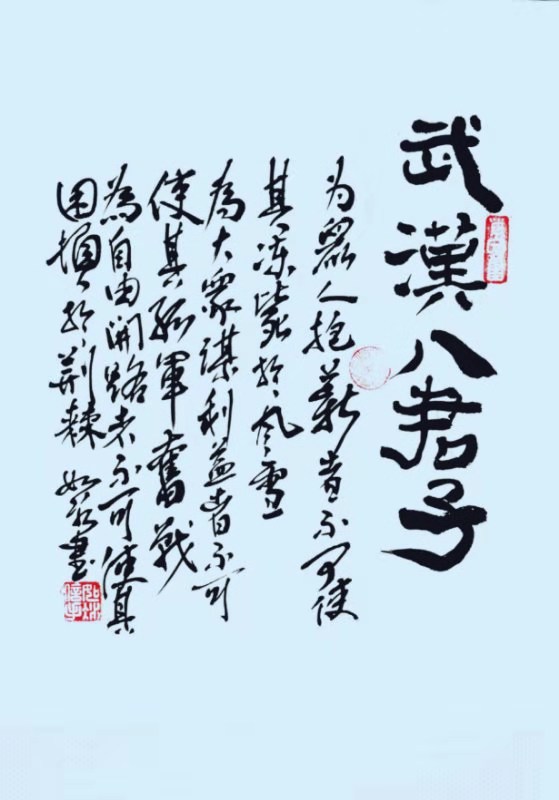 武漢八君子
为眾人抱薪者不可使
其凍毙於风雪
為大眾謀利益者不可
使其孤軍奮戰
為自由開路者不可使其
困頓於荆棘 如 書